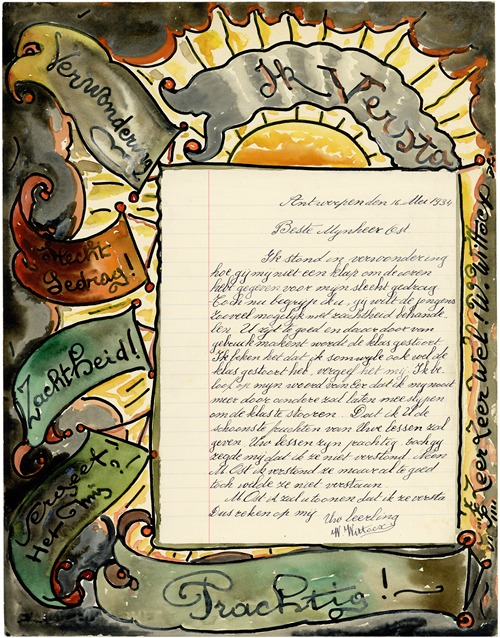 Verwondering
Ik Versta
Slecht
Gedrag!
Zachtheid!
Vergeef
Het Mij
?
Antwerpen den 16 Mei 1934
Beste Mynheer Ost.
Ik stond in verwondering
hoe gij my niet een klap om de ooren
hebt gegeven voor mijn slecht gedrag
Toch nu begryp ik u, gy wilt de jongens
zooveel mogelijk met zachtheid behande
len. U zyt te goed en daar door van
gebruik makent wordt de klas gestoort.
Ik feken het dat ik somwyle ook wel de
klas gestoort heb, vergeef het my. Ik be
loof op myn woord van Eer dat ik my nooit
meer door andere zal laten meeslypen
om de klas te stooren. Dat ik U de
schoonste fruchten van Uwe lessen zal
geven. Uw lessen zyn prachtig, toch gy
zegde my dat ik ze niet verstond. Neen
M. Ost ik verstond ze maar al te goed
toch wilde ze niet verstaan.
M. Ost ik zal u toonen dat ik ze versta
Dus reken op my Uw leerling
W. Wittocx
Ik Leer Zeer Wel! W. Wittocx
Prachtig!